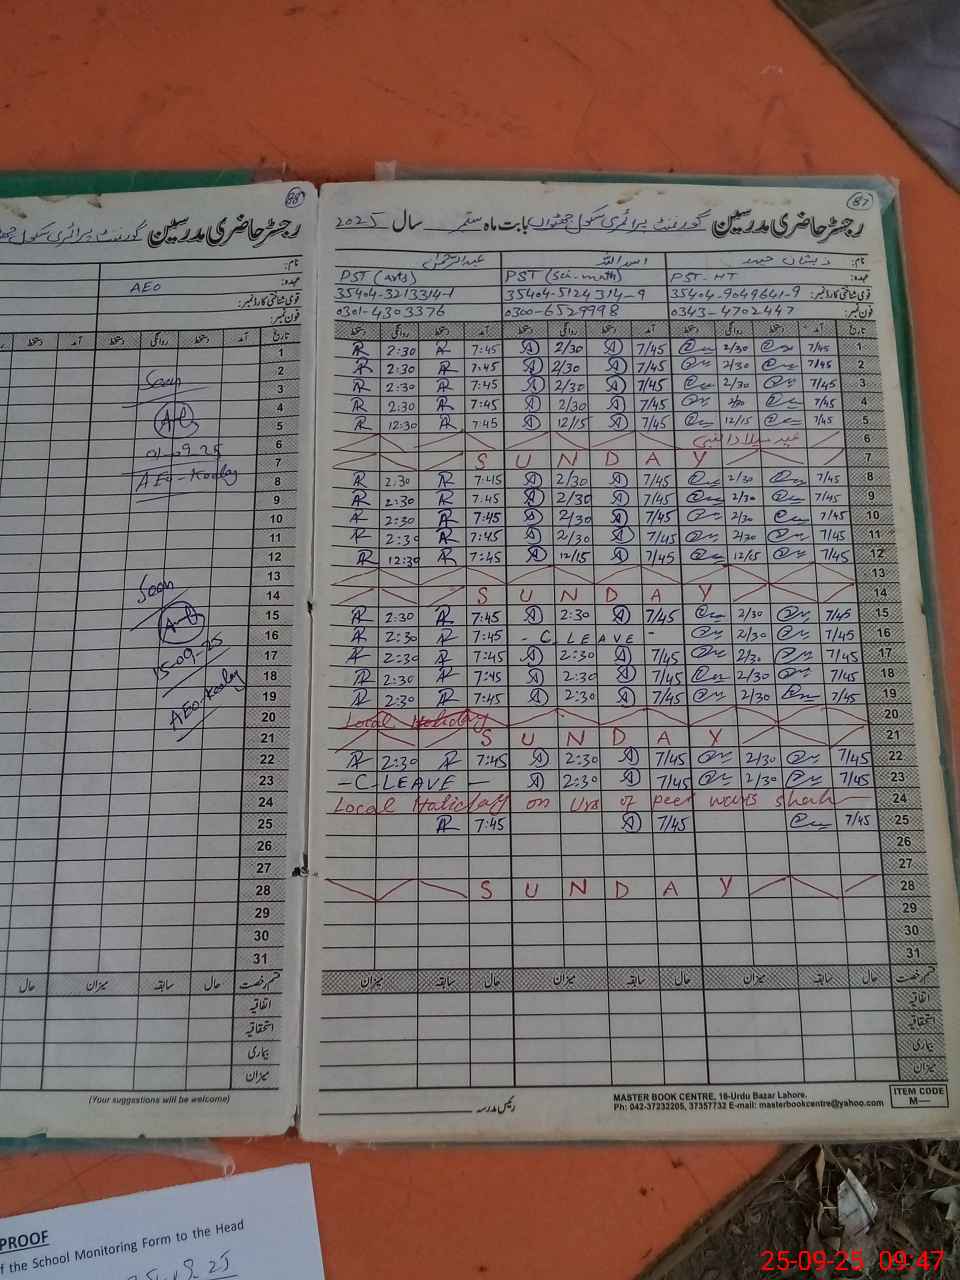 88
رجسٹر حاضری مدرسین گورنمنٹ پرائمری سکول
نام:
عہدہ: AEO
قومی شناختی کارڈ نمبر:
فون نمبر:
تاریخ آمد دستخط روانگی دستخط آمد
1
2
Seen
3
4
5
6
01-09-25
7
AEO-
8
9
10
11
12
13
14
Seen
15
16
17
15-09-25
18
19
AEO-
20
21
22
23
24
25
26
27
28
29
30
31
قسم رخصت حال سابقہ میزان حال
اتفاقیہ
استحقاقیہ
بیماری
میزان
(Your suggestions will be welcome)
87
رجسٹر حاضری مدرسین گورنمنٹ پرائمری سکول بابت ماہ ستمبر سال 2025
نام: ذیشان حیدر اسد اللہ عبدالرحمٰن
عہدہ: PST-HT PST (Sci-math) PST (arts)
قومی شناختی کارڈ نمبر: 35404-9049641-9 35404-5124314-9 35404-3213314-1
فون نمبر: 0343-4702447 0300-6529998 0301-4303376
تاریخ آمد دستخط روانگی دستخط آمد دستخط روانگی دستخط آمد دستخط روانگی دستخط
2:30 7:45 2/30 7/45 2/30 7/45 1
2:30 7:45 2/30 7/45 2/30 7/45 2
2:30 7:45 2/30 7/45 2/30 7/45 3
2:30 7:45 2/30 7/45 2/30 7/45 4
12:30 7:45 12/15 7/45 12/15 7/45 5
عید میلاد النبی 6
S U N D A Y 7
2:30 7:45 2/30 7/45 2/30 7/45 8
2:30 7:45 2/30 7/45 2/30 7/45 9
2:30 7:45 2/30 7/45 2/30 7/45 10
2:30 7:45 2/30 7/45 2/30 7/45 11
12:30 7:45 12/15 7/45 12/15 7/45 12
13
S U N D A Y 14
2:30 7:45 2:30 7/45 2/30 7/45 15
2:30 7:45 - C LEAVE - 2/30 7/45 16
2:30 7:45 2:30 7/45 2/30 7/45 17
2:30 7:45 2:30 7/45 2/30 7/45 18
2:30 7:45 2:30 7/45 2/30 7/45 19
Local Holiday 20
S U N D A Y 21
2:30 7:45 2:30 7/45 2/30 7/45 22
- C-LEAVE - 2:30 7/45 2/30 7/45 23
Local Holiday on Urs of peer waris shah 24
7:45 7/45 7/45 25
26
27
S U N D A Y 28
29
30
31
قسم رخصت حال سابقہ میزان حال سابقہ میزان حال سابقہ میزان
اتفاقیہ
استحقاقیہ
بیماری
میزان
رئیس مدرسہ
MASTER BOOK CENTRE, 16-Urdu Bazar Lahore.
Ph: 042-37232205, 37357732 E-mail: masterbookcentre@yahoo.com
ITEM CODE
M—
PROOF
f the School Monitoring Form to the Head
25-09-25 09:47